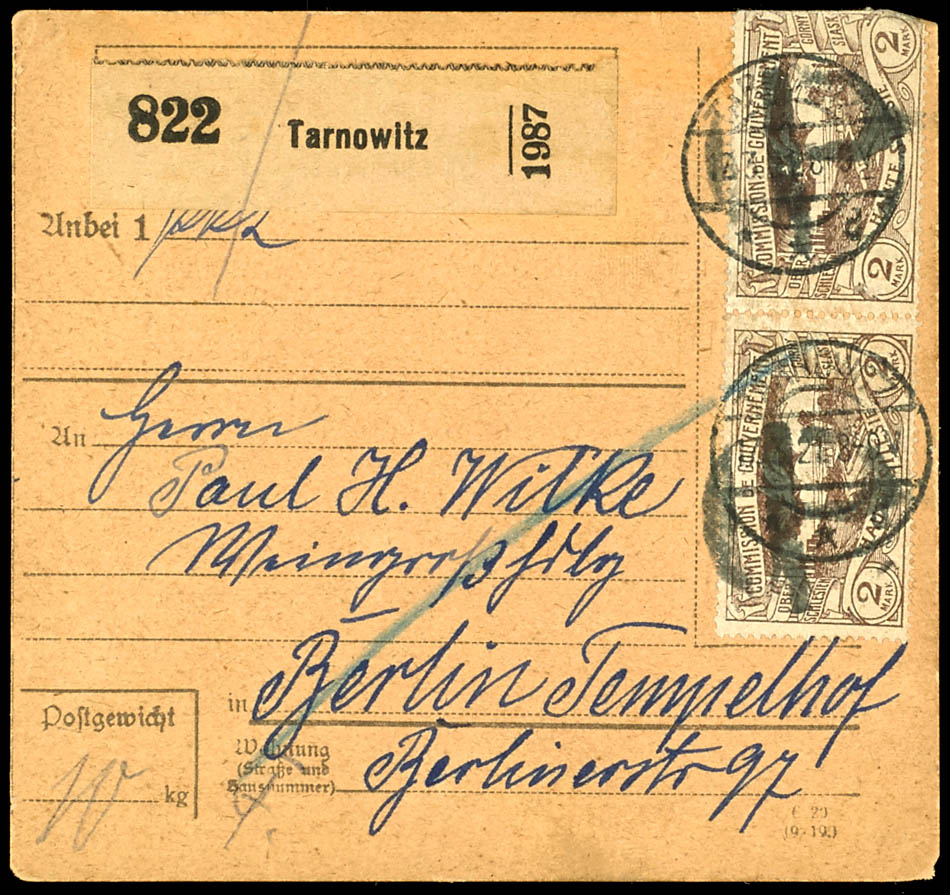 822 Tarnowitz 1987
Anbei 1
An Herrn
Paul H. Wilke
Weingroßhdlg
in Berlin Tempelhof
Wohnung
(Straße und
Hausnummer)
Berlinerstr 97
Postgewicht
10 kg
(9. 19.)
COMMISSION DE GOUVERNEMENT
HAUTE SILESIE
GORNY
SLASK
OBER
SCHLESIEN
2
MARK
2
MARK
COMMISSION DE GOUVERNEMENT
HAUTE SILESIE
SLASK
OBER
SCHLESIEN
2
MARK